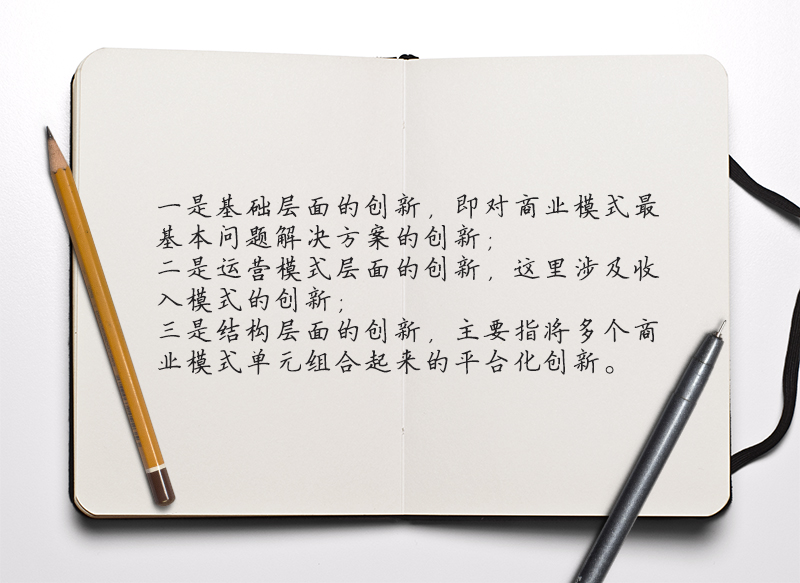 一是基础层面的创新，即对商业模式最
基本问题解决方案的创新；
二是运营模式层面的创新，这里涉及收
入模式的创新；
三是结构层面的创新，主要指将多个商
业模式单元组合起来的平台化创新。